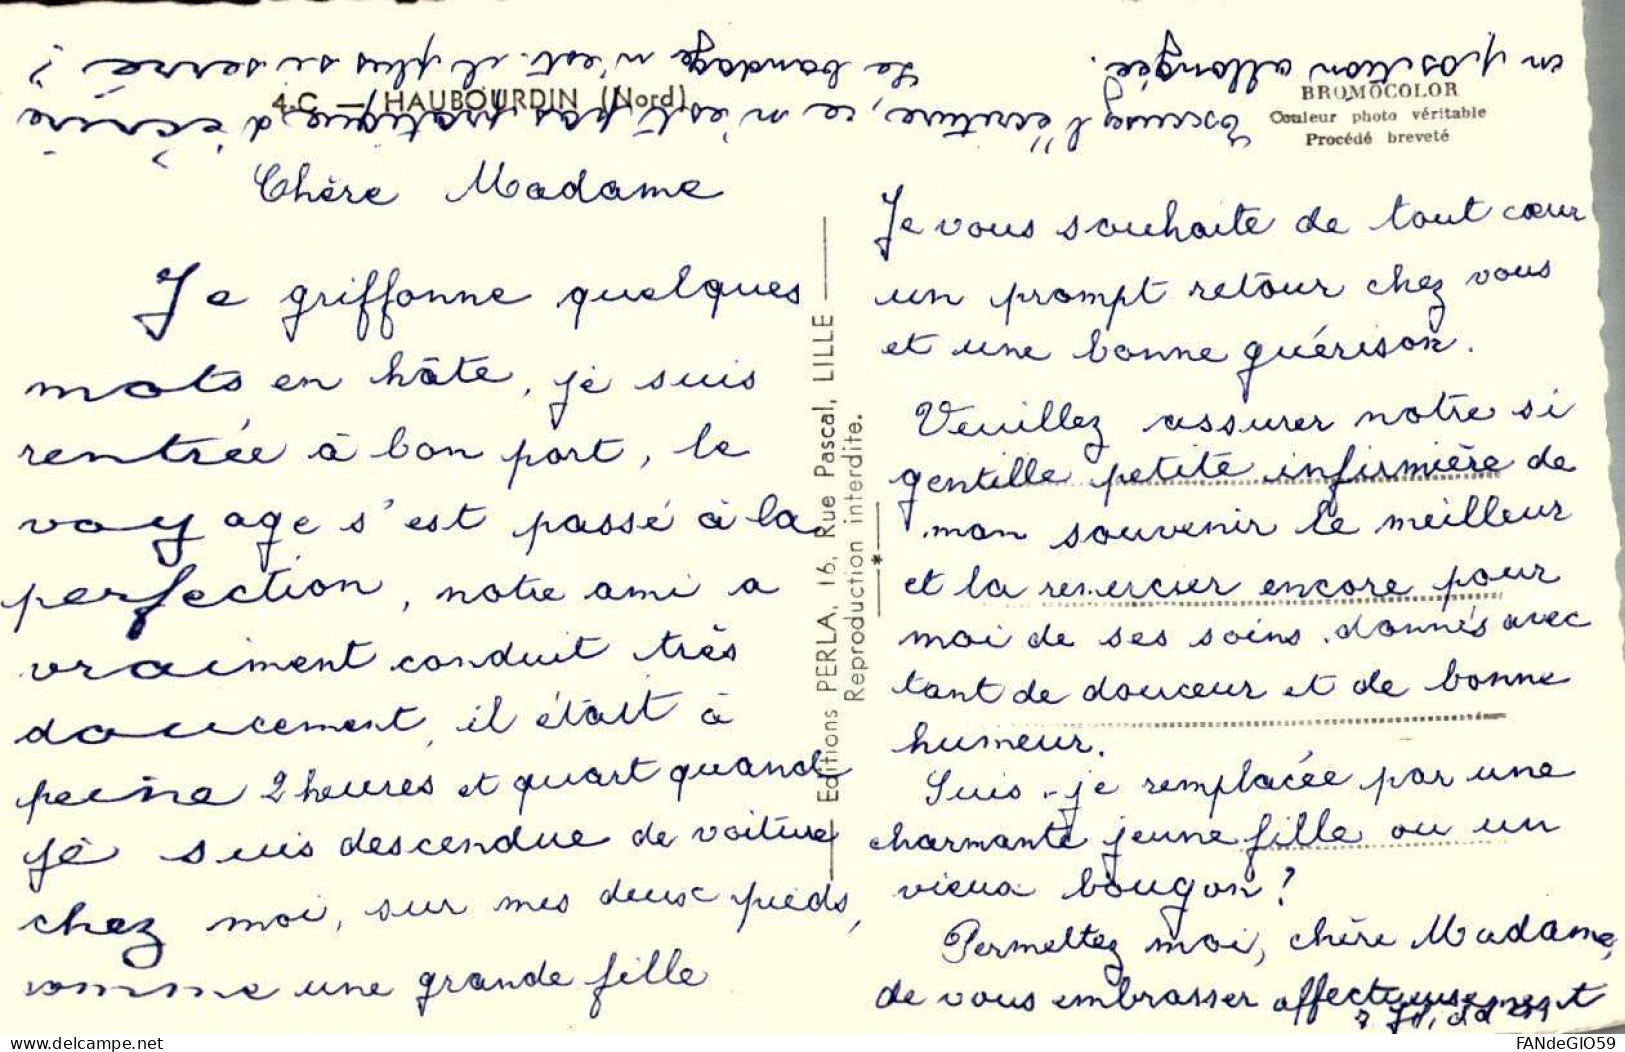 4-C — HAUBOURDIN (Nord)
BROMOCOLOR
Couleur photo véritable
Procédé breveté
Chère Madame
Je griffonne quelques
mots en hâte, je suis
rentrée à bon port, le
voyage s'est passé à la
perfection, notre ami a
vraiment conduit très
doucement, il était à
peine 2 heures et quart quand
je suis descendue de voiture
chez moi, sur mes deux pieds,
comme une grande fille
Editions PERLA, 16, Rue Pascal, LILLE
Reproduction interdite.
Je vous souhaite de tout cœur
un prompt retour chez vous
et une bonne guérison.
Veuillez assurer notre si
gentille petite infirmière de
mon souvenir le meilleur
et la remercier encore pour
moi de ses soins donnés avec
tant de douceur et de bonne
humeur.
Suis-je remplacée par une
charmante jeune fille ou un
vieux bougon?
Permettez moi, chère Madame,
de vous embrasser affectueusement
Excusez l'écriture, ce n'est pas pratique d'écrire
en position allongée.
Le bandage n'est-il plus si serré ?
FANdeGIO59